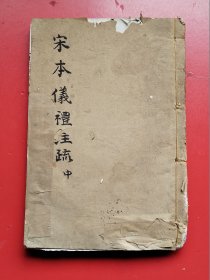 宋本儀禮注疏中